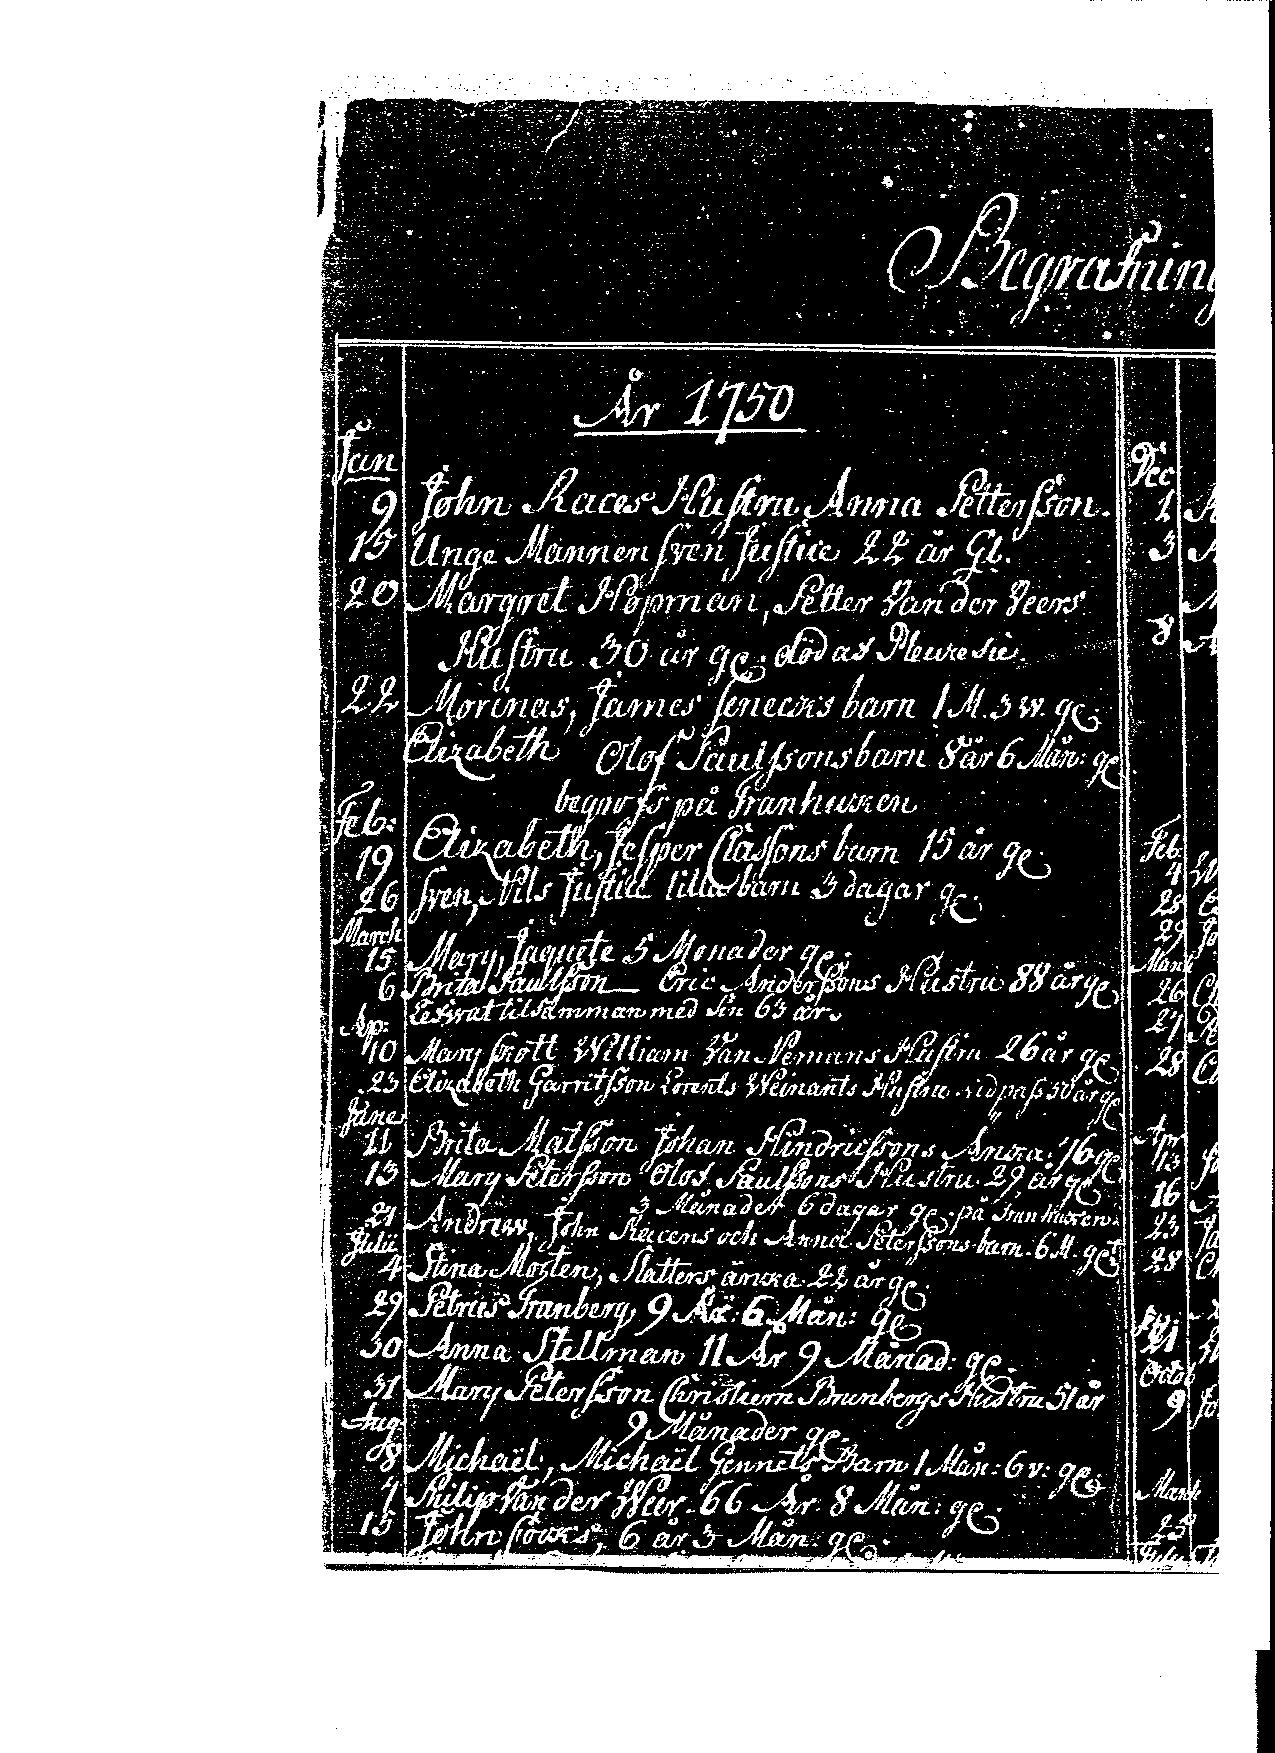 Begrafning
År 1750
Jan
9 John Races Hustru Anna Pettersson.
15 Unge Mannen Sven Justice 22 år Gl.
20 Margret Hopman, Petter Van der Veers
Hustru 30 år ge. död af Pleuresie
22 Morinas, James Senecks barn 1 M. 3 w. ge.
Elizabeth Olof Paulssons barn 8 år 6 Mån: ge
begrofs på Tranhuken
Feb:
19 Elizabeth, Jesper Classons barn 15 år ge.
26 Sven, Nils Justice lilla barn 3 dagar ge.
March
15 Mary, Jaquete 5 Monader ge.
6 Brita Paulsson Eric Anderssons Hustru 88 år ge
Lefwat tilsamman med sin 63 år.
Ap:
10 Mary Skott William Van Nemans Hustru 26 år ge
23 Elizabeth Garritsson Lorents Weinants Hustru vid pass 50 år ge
June
11 Brita Matsson Johan Hindricssons Ancka 76 ge
13 Mary Petersson Olof Paulssons Hustru 29 år ge
3 Månader 6 dagar ge. på Tranhuken.
21 Andrew, John Racens och Anna Peterssons barn. 6 M. ge
Julii
4 Stina Morten, Slatters äncka 22 år ge.
29 Petrus Tranberg, 9 År: 6 Mån: ge
30 Anna Stellman 11 År 9 Månad: ge.
31 Mary Petersson Christiern Brunbergs Hustru 51 år
Aug
9 Månader ge.
8 Michaël, Michaël Gennets Barn 1 Mån: 6 v: ge.
7 Philip Van der Weer. 66 År. 8 Mån: ge.
15 John 6 år 3 Mån: ge.
Dec
1
3
8
Feb
4
28
29
March
26
27
28
Apr
13
16
23
28
21
Octob
9
March
25